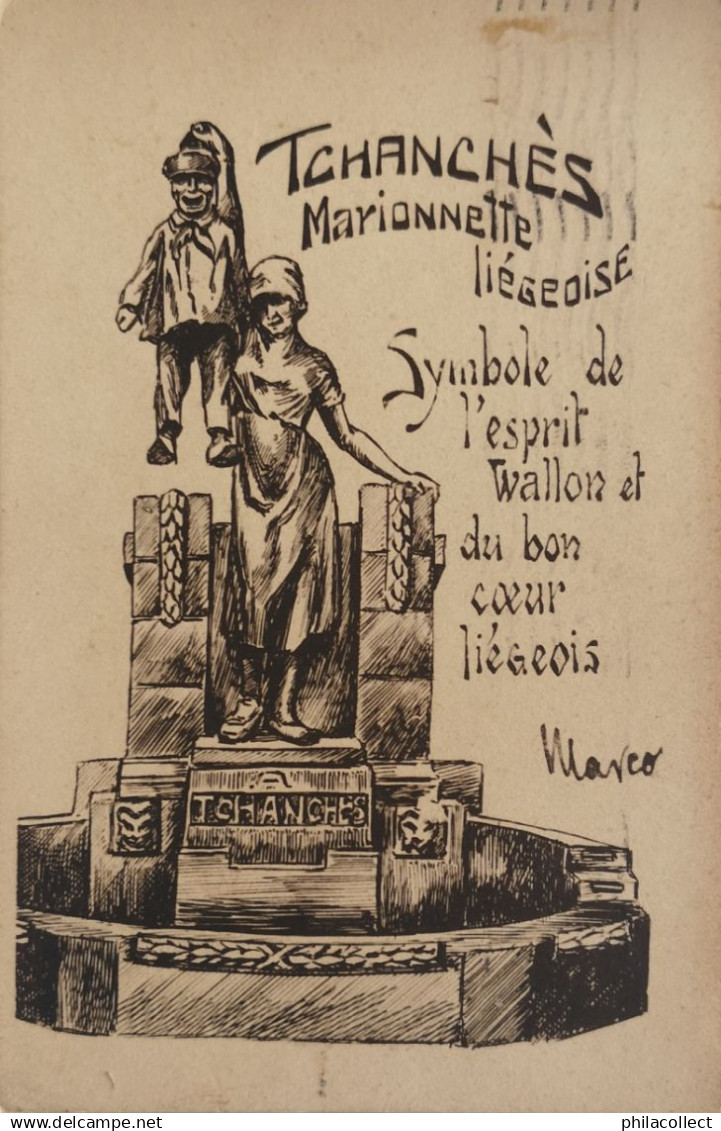 TCHANCHÈS
Marionnette
liégeoise
Symbole de
l'esprit
Wallon et
du bon
cœur
liégeois
Marco
A
TCHANCHÈS
delcampe.net
philacollect